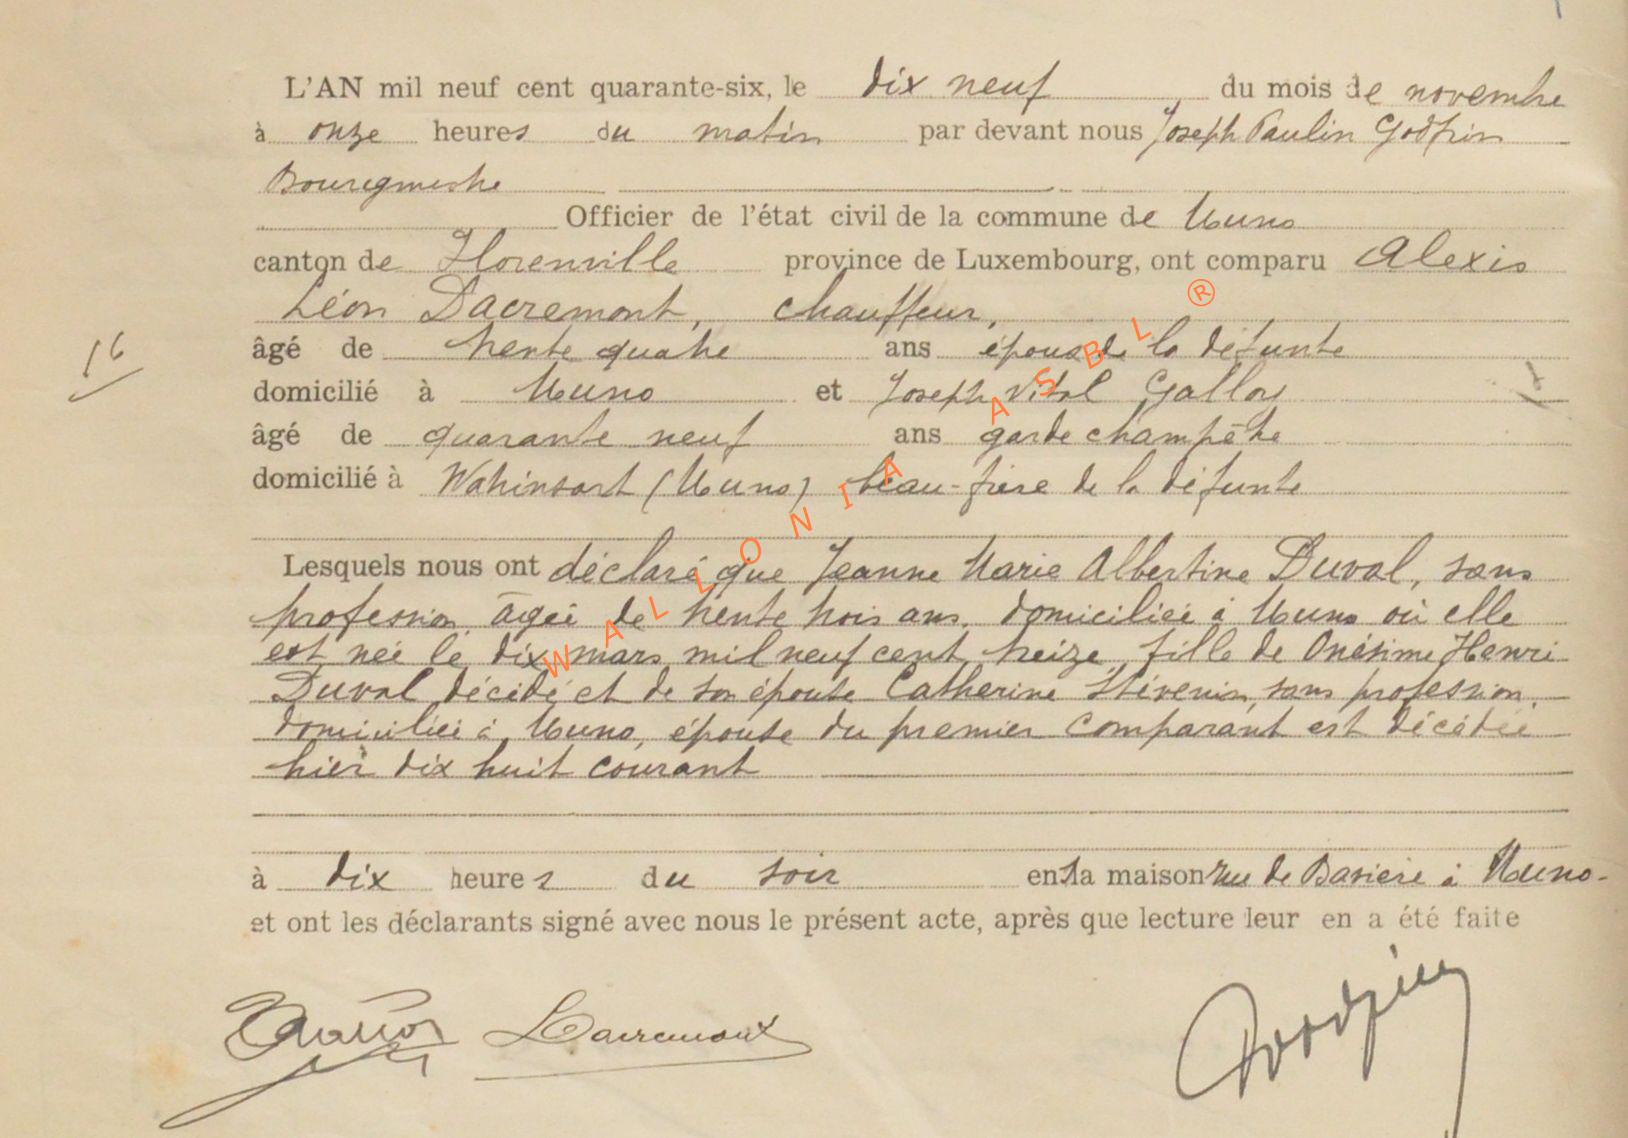 L'AN mil neuf cent quarante-six, le dix neuf du mois de novembre
à onze heures du matin par devant nous Joseph Paulin Godfrin
Bourgmestre
Officier de l'état civil de la commune de Muno
canton de Florenville province de Luxembourg, ont comparu Alexis
Léon Dacremont, chauffeur,
16
âgé de trente quatre ans époux de la défunte
domicilié à Muno et Joseph Vital Galloy
âgé de quarante neuf ans garde champêtre
domicilié à Watrinsart (Muno) beau-frère de la défunte
Lesquels nous ont déclaré que Jeanne Marie Albertine Duval, sans
profession, âgée de trente trois ans, domiciliée à Muno où elle
est née le dix mars mil neuf cent treize, fille de Onésime Henri
Duval décédé et de son épouse Catherine Stévenin, sans profession,
domiciliée à Muno, épouse du premier comparant est décédée
hier dix huit courant
à dix heures du soir en sa maison rue de à Muno-
et ont les déclarants signé avec nous le présent acte, après que lecture leur en a été faite
Dacremont
WALLONIA ASBL ®